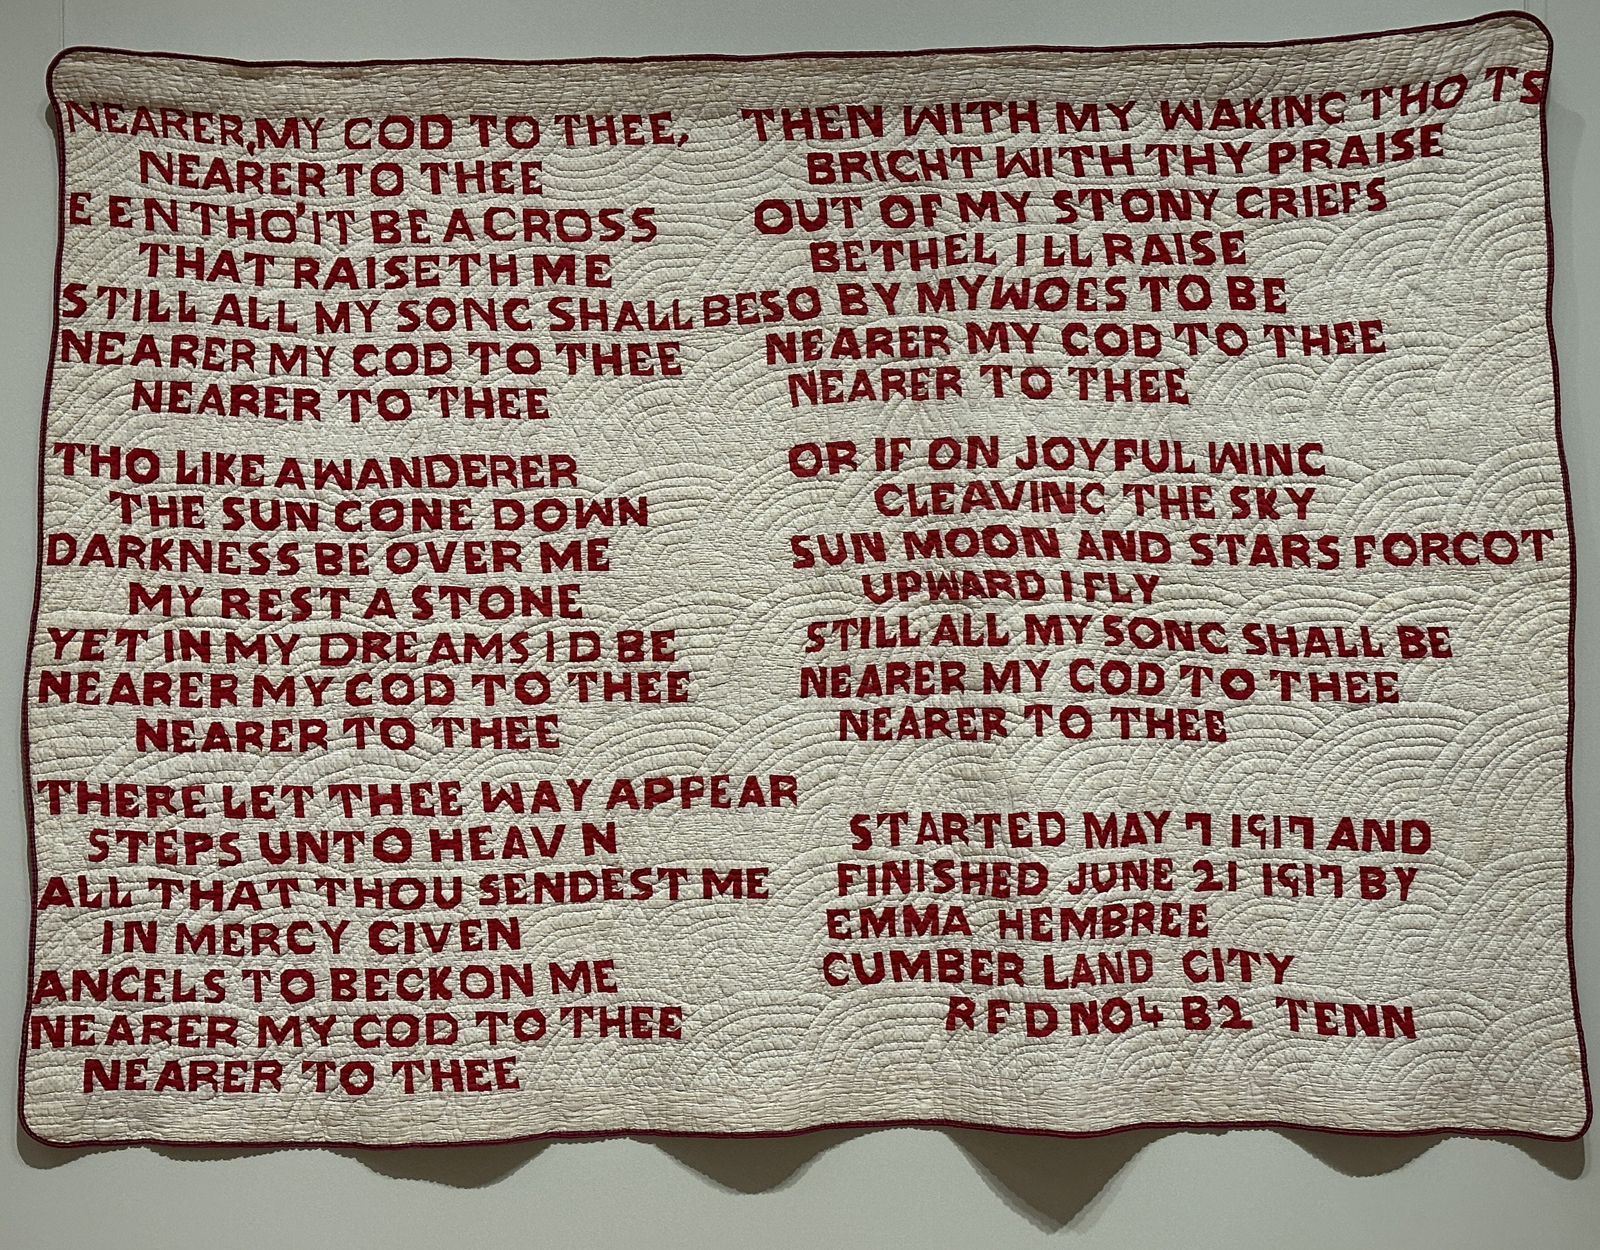 NEARER, MY COD TO THEE,
NEARER TO THEE
E EN THO' IT BE A CROSS
THAT RAISETH ME
STILL ALL MY SONC SHALL BE
NEARER MY COD TO THEE
NEARER TO THEE
THO LIKE A WANDERER
THE SUN CONE DOWN
DARKNESS BE OVER ME
MY REST A STONE
YET IN MY DREAMS I D BE
NEARER MY COD TO THEE
NEARER TO THEE
THERE LET THEE WAY APPEAR
STEPS UNTO HEAV N
ALL THAT THOU SENDEST ME
IN MERCY CIVEN
ANCELS TO BECKON ME
NEARER MY COD TO THEE
NEARER TO THEE
THEN WITH MY WAKINC THO TS
BRICHT WITH THY PRAISE
OUT OF MY STONY CRIEFS
BETHEL I LL RAISE
SO BY MY WOES TO BE
NEARER MY COD TO THEE
NEARER TO THEE
OR IF ON JOYFUL WINC
CLEAVINC THE SKY
SUN MOON AND STARS FORCOT
UPWARD I FLY
STILL ALL MY SONC SHALL BE
NEARER MY COD TO THEE
NEARER TO THEE
STARTED MAY 7 1917 AND
FINISHED JUNE 21 1917 BY
EMMA HEMBREE
CUMBER LAND CITY
R F D NO 4 B 2 TENN